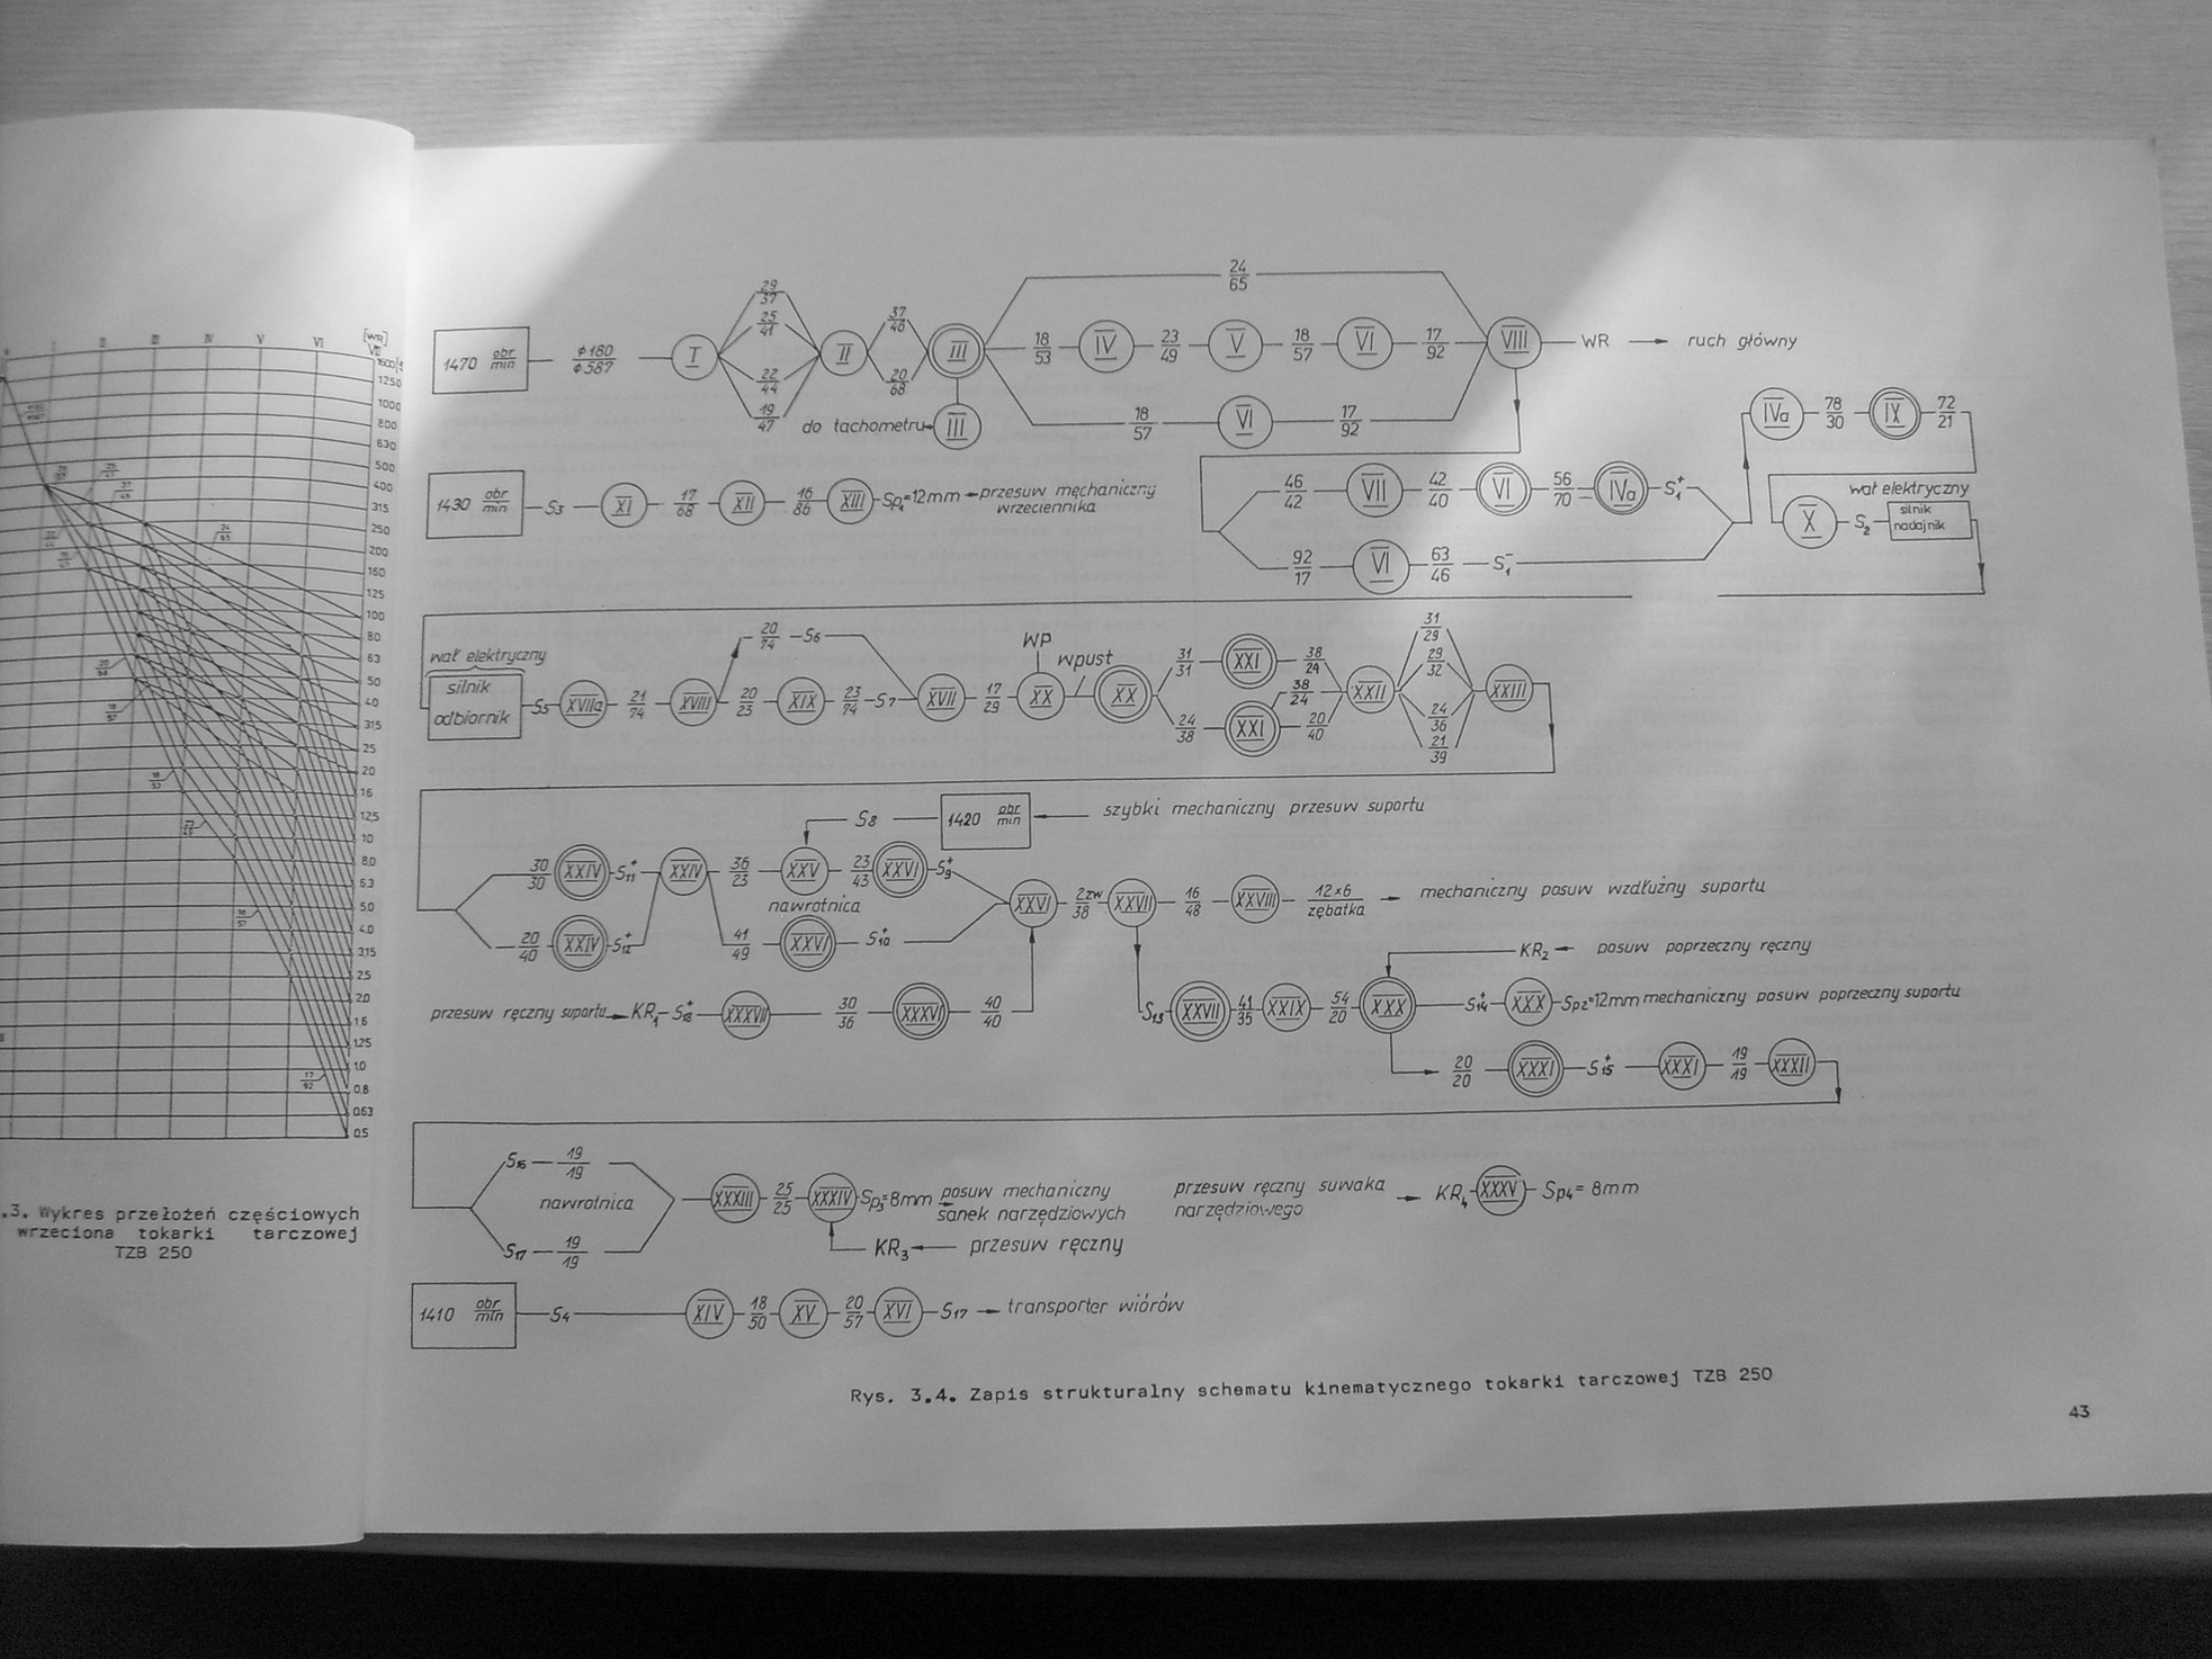 I II III IV V VI [WR]
VIII
1250
1000
800
630
500
400
315
250
200
160
125
100
80
63
50
40
31,5
25
20
16
12,5
10
8,0
6,3
5,0
4,0
3,15
2,5
2,0
1,6
1,25
1,0
0,8
0,63
0,5
.3. Wykres przełożeń częściowych
wrzeciona tokarki tarczowej
TZB 250
1470 obr/min φ180/φ587 I 29/37 25/41 22/44 19/47 II 37/48 20/68 III
24/65
18/53 IV 23/49 V 18/57 VI 17/92 VIII WR → ruch główny
do tachometru III 18/57 VI 17/92
1430 obr/min S3 XI 17/68 XII 16/86 XIII Sp1=12mm przesuw mechaniczny
wrzeciennika
46/42 VII 42/40 VI 56/70 IVa S1+
92/17 VI 63/46 S1-
IVa 78/30 IX 72/21
wał elektryczny
X S2 silnik
nadajnik
wał elektryczny
silnik
odbiornik
S5 XVIIa 21/74 XVIII 20/74 S6
20/23 XIX 23/74 S7 XVII 17/29 WP XX wpust XX
31/31 XXI 38/24
38/24
24/38 XXI 20/40
XXII 31/29 29/32 24/36 21/39 XXIII
S8 1420 obr/min szybki mechaniczny przesuw suportu
30/30 XXIV S11+ XXIV 36/23 XXV 23/43 XXVI S9+
nawrotnica
20/40 XXIV S12+ 41/49 XXVI S10+
XXVI 2zw/38 XXVII 16/48 XXVIII 12×6/zębatka → mechaniczny posuw wzdłużny suportu
KR2 ← posuw poprzeczny ręczny
przesuw ręczny suportu KR1 S18+ XXXVII 30/36 XXXVI 40/40
S13 XXVII 41/35 XXIX 54/20 XXX S14+ XXX Sp2=12mm mechaniczny posuw poprzeczny suportu
20/20 XXXI S15+ XXXI 19/19 XXXII
S16 19/19
nawrotnica
S17 19/19
XXXIII 25/25 XXXIV Sp3=8mm posuw mechaniczny
sanek narzędziowych
KR3 ← przesuw ręczny
przesuw ręczny suwaka
narzędziowego
KR4 XXXV Sp4=8mm
1410 obr/min S4 XIV 18/50 XV 20/57 XVI S17 → transporter wiórów
Rys. 3.4. Zapis strukturalny schematu kinematycznego tokarki tarczowej TZB 250
43